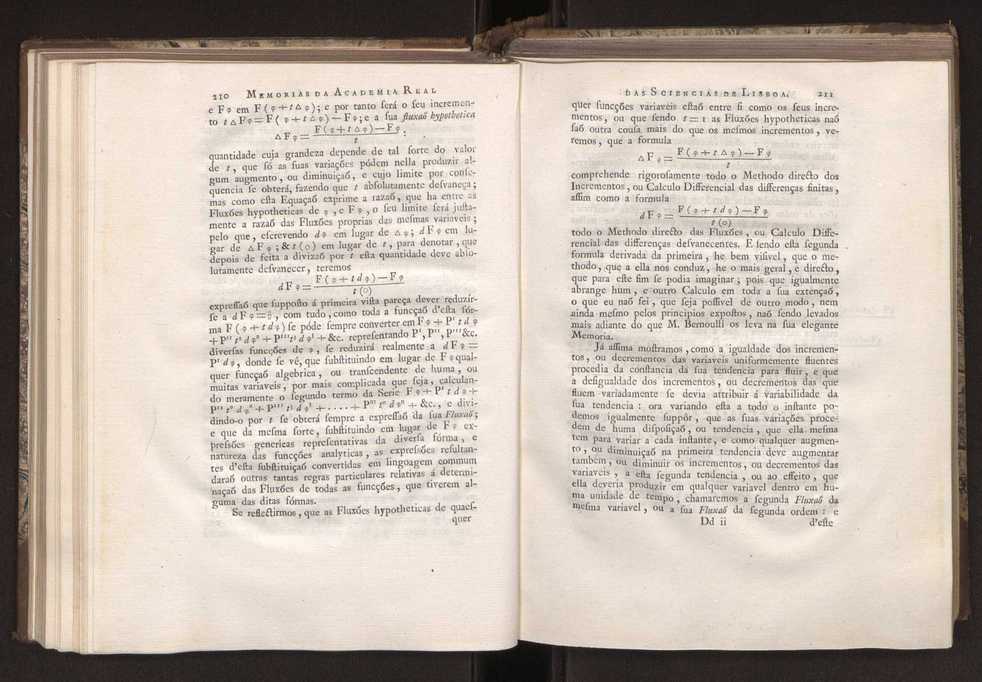 210 MEMORIAS DA ACADEMIA REAL
e Fφ em F(φ+t△φ); e por tanto ſerá o ſeu incremen-
to t△Fφ=F(φ+t△φ)—Fφ; e a ſua fluxaõ hypothetica
△Fφ = F(φ+t△φ)—Fφ / t .
quantidade cuja grandeza depende de tal ſorte do valor
de t, que ſó as ſuas variações pódem nella produzir al-
gum augmento, ou diminuiçaõ, e cujo limite por conſe-
quencia ſe obterá, fazendo que t abſolutamente deſvaneça;
mas como eſta Equaçaõ exprime a razaõ, que ha entre as
Fluxões hypotheticas de φ, e Fφ, o ſeu limite ſerá juſta-
mente a razaõ das Fluxões proprias das meſmas variaveis;
pelo que, eſcrevendo dφ em lugar de △φ; dFφ em lu-
gar de △Fφ; & t(0) em lugar de t, para denotar, que
depois de feita a divizaõ por t eſta quantidade deve abſo-
lutamente deſvanecer, teremos
dFφ = F(φ+tdφ)—Fφ / t(0)
expreſſaõ que ſuppoſto á primeira viſta pareça dever reduzir-
ſe a dFφ=0/0, com tudo, como toda a funcçaõ d'eſta fór-
ma F(φ+tdφ) ſe póde ſempre converter em Fφ+P' t dφ
+P'' t² dφ²+P''' t³ dφ³+&c. repreſentando P', P'', P''' &c.
diverſas funcções de φ, ſe reduzirá realmente a dFφ=
P' dφ, donde ſe vê, que ſubſtituindo em lugar de Fφ qual-
quer funçaõ algebrica, ou tranſcendente de huma, ou
muitas variaveis, por mais complicada que ſeja, calculan-
do meramente o ſegundo termo da Serie Fφ+P' t dφ+
P'' t² dφ²+P''' t³ dφ³+.....+Pⁿ tⁿ dφⁿ+&c., e divi-
dindo-o por t ſe obterá ſempre a expreſſaõ da ſua Fluxaõ;
e que da meſma ſorte, ſubſtituindo em lugar de Fφ ex-
preſsões genericas repreſentativas da diverſa fórma, e
natureza das funcções analyticas, as expreſsões reſultan-
tes d'eſta ſubſtituiçaõ convertidas em linguagem commum
daraõ outras tantas regras particulares relativas á determi-
naçaõ das Fluxões de todas as funcções, que tiverem al-
guma das ditas fórmas.
Se reflectirmos, que as Fluxões hypotheticas de quaeſ-
quer
DAS SCIENCIAS DE LISBOA. 211
quer funcções variaveis eſtaõ entre ſi como os ſeus incre-
mentos, ou que ſendo t=1 as Fluxões hypotheticas naõ
ſaõ outra couſa mais do que os meſmos incrementos, ve-
remos, que a formula
△Fφ = F(φ+t△φ)—Fφ / t
comprehende rigoroſamente todo o Methodo directo dos
Incrementos, ou Calculo Differencial das differenças finitas,
aſſim como a formula
dFφ = F(φ+tdφ)—Fφ / t(0)
todo o Methodo directo das Fluxões, ou Calculo Diffe-
rencial das differenças deſvanecentes. E ſendo eſta ſegunda
formula derivada da primeira, he bem viſivel, que o me-
thodo, que a ella nos conduz, he o mais geral, e directo,
que para eſte fim ſe podia imaginar; pois que igualmente
abrange hum, e outro Calculo em toda a ſua extençaõ,
o que eu naõ ſei, que ſeja poſſivel de outro modo, nem
ainda meſmo pelos principios expoſtos, naõ ſendo levados
mais adiante do que M. Bernoulli os leva na ſua elegante
Memoria.
Já aſſima moſtramos, como a igualdade dos incremen-
tos, ou decrementos das variaveis uniformemente fluentes
procedia da conſtancia da ſua tendencia para fluir, e que
a deſigualdade dos incrementos, ou decrementos das que
fluem variadamente ſe devia attribuir á variabilidade da
ſua tendencia: ora variando eſta a todo o inſtante po-
demos igualmente ſuppôr, que as ſuas variações proce-
dem de huma diſpoſiçaõ, ou tendencia, que ella meſma
tem para variar a cada inſtante, e como qualquer augmen-
to, ou diminuiçaõ na primeira tendencia deve augmentar
tambem, ou diminuir os incrementos, ou decrementos das
variaveis, a eſta ſegunda tendencia, ou ao effeito, que
ella deveria produzir em qualquer variavel dentro em hu-
ma unidade de tempo, chamaremos a ſegunda Fluxaõ da
meſma variavel, ou a ſua Fluxaõ da ſegunda ordem: e
Dd ii d'eſte